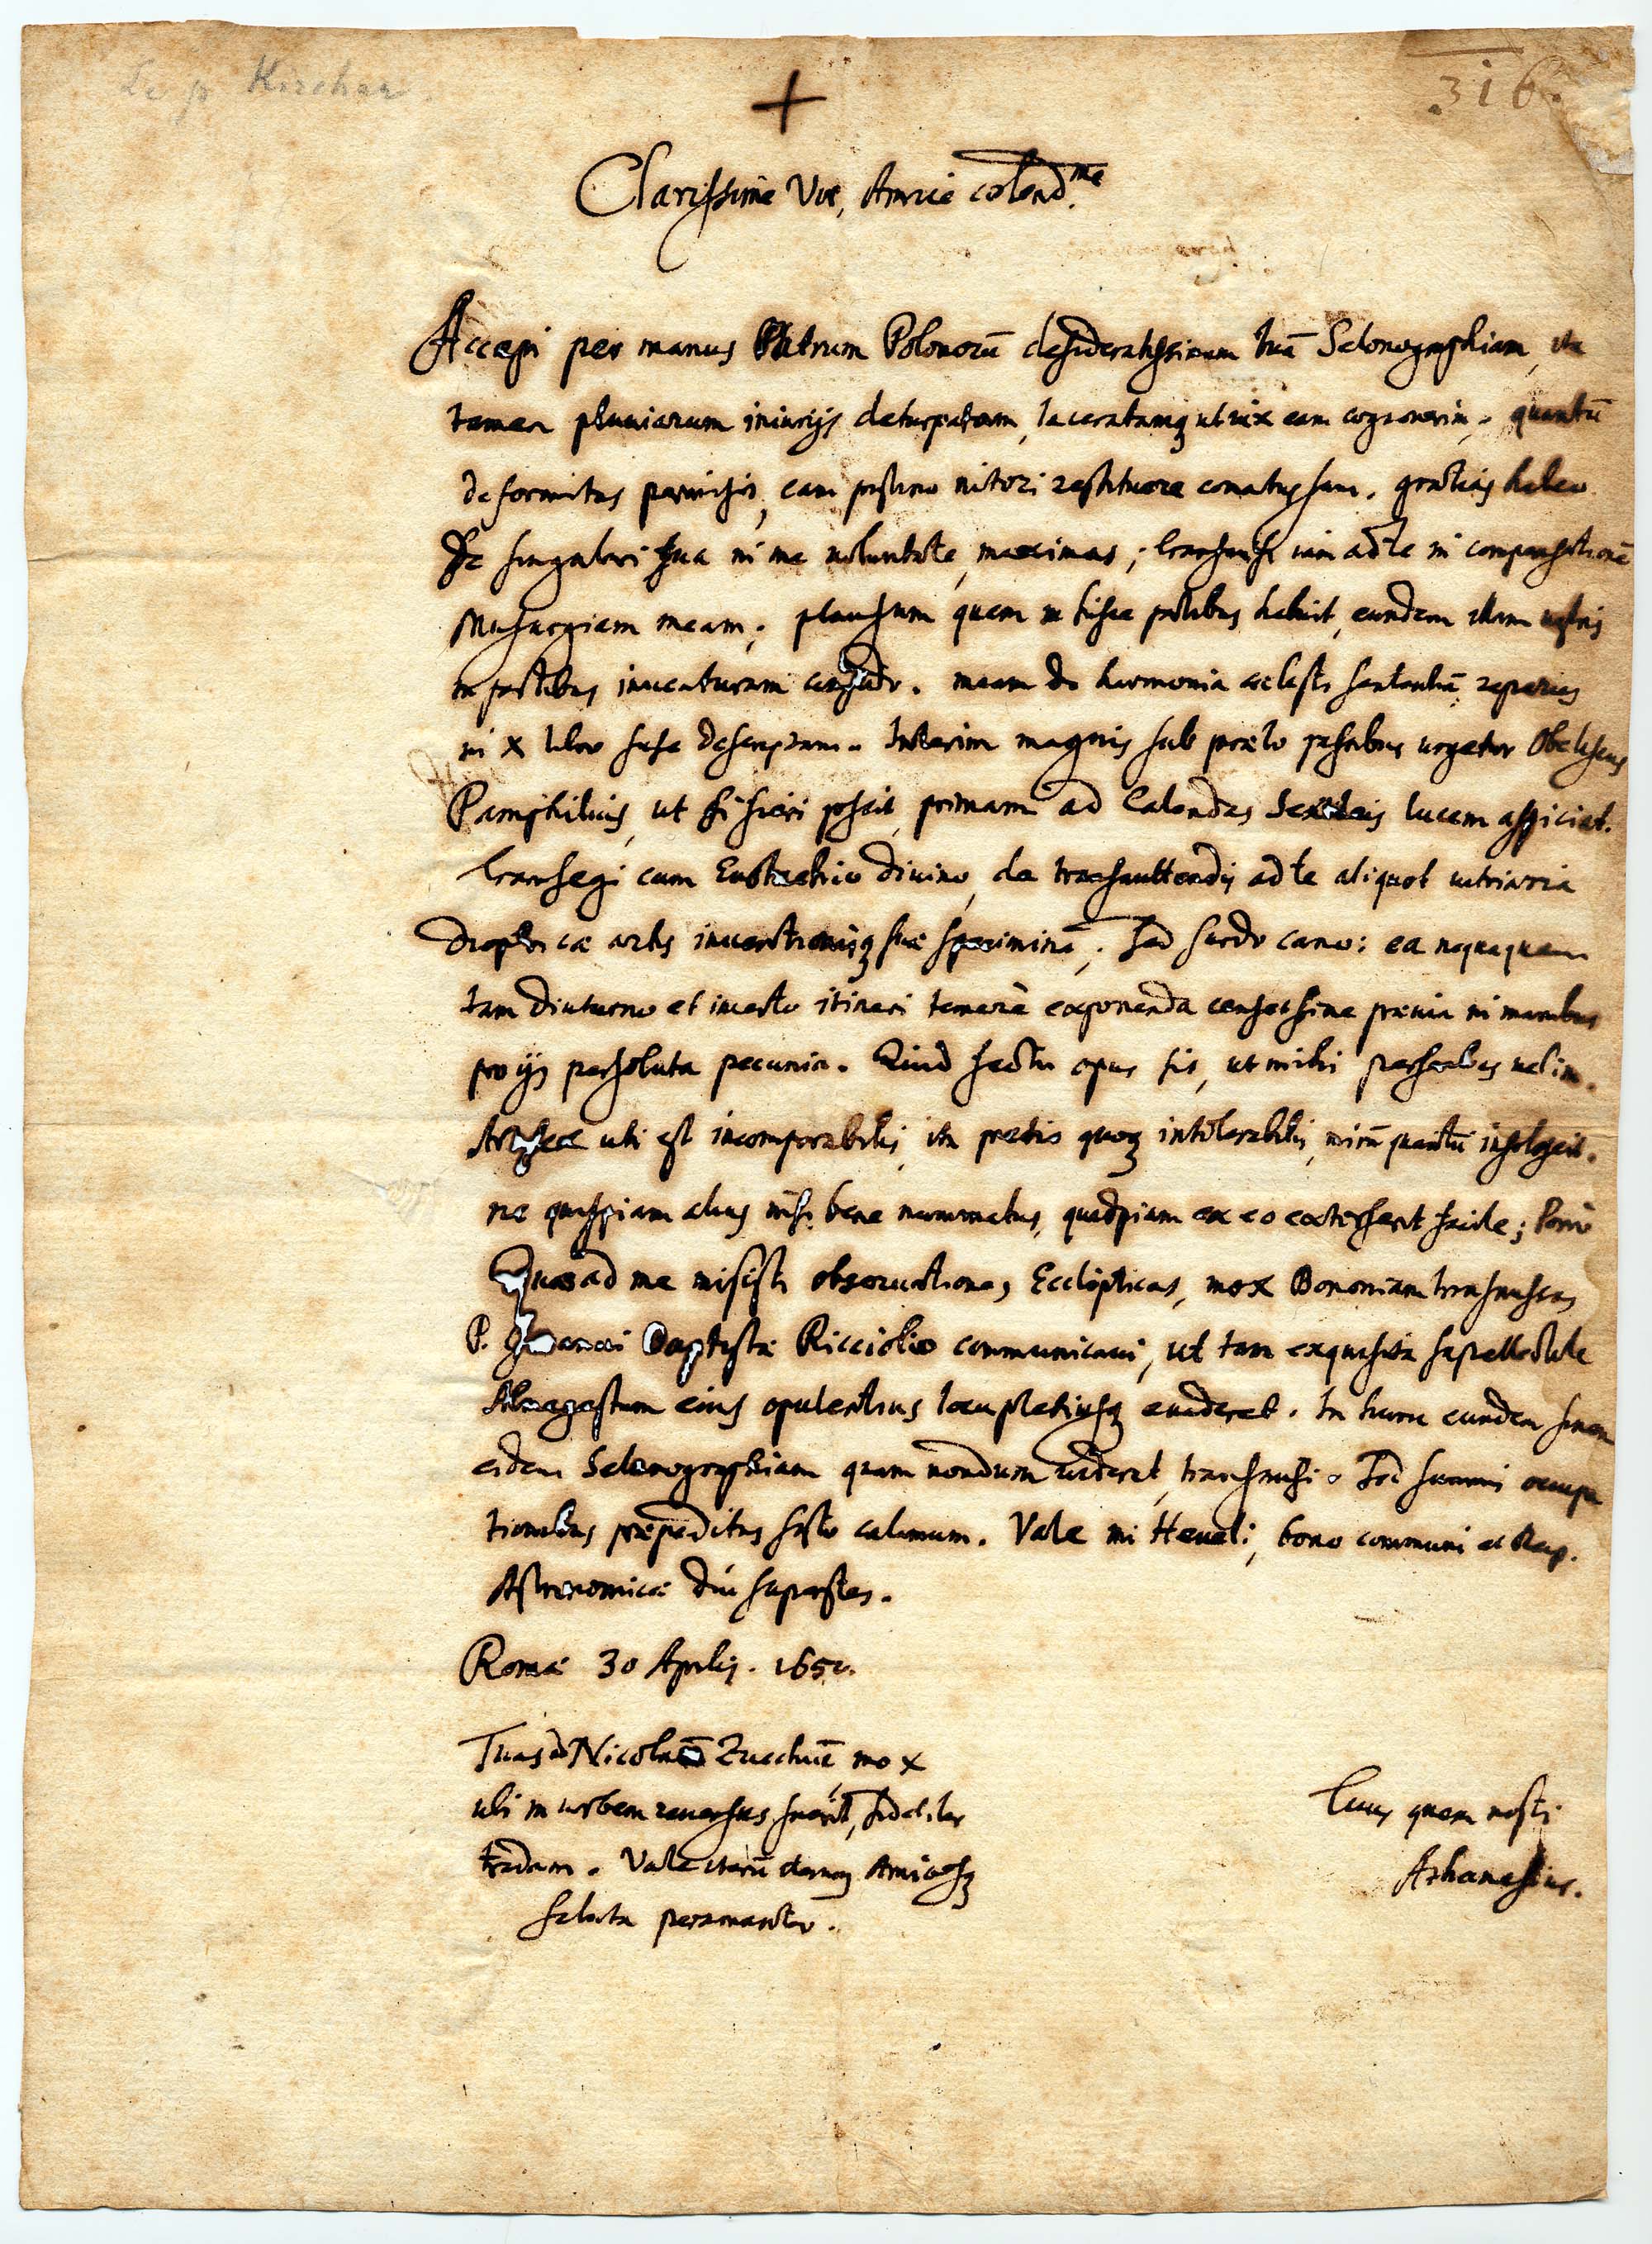 Le p Kircher.
316.
+
Clarissime Vir, Amice colend.me
Accepi per manus Patrum Polonorū desideratissimam tuā Selenographiam, ita
tamen pluuiarum iniurijs deturpatam, laceratamq ut uix eam cognouerim, quantū
deformitas permisit, eam pristino nitori restituere conatus sum. gratias habeo
de singulari tua in me uoluntate, maximas; transmisi iam ad te in compensationē
Musurgiam meam; plausum quem in hisce partibus habuit, eundem etiam uestris
in partibus inuenturam confido. meam de harmonia coelesti sententiā reperies
in X libro fuse descriptam. Interim magnis sub praelo passibus urgetur Obeliscus
Pamphilius, ut si fieri possit, primam ad Calendas Sextiles lucem aspiciat.
Transegi cum Eustachio diuino, de transmittendis ad te aliquot uitriaria
dioptricae artis inuentionisq suae speciminā; sed surdo cano: ea nequaquam
tam diuturno et incerto itineri temerè exponenda censet sine praeuia in manibus
pro ijs persoluta pecunia. Quid factu opus sit, ut mihi perscribas uelim.
Artifex uti est incomparabilis, ita pretio quoq intolerabilis, mirū quantū insolescit.
ne quispiam alius nisi bene nummatus, quidpiam ex eo extorserit facile; Porro
Quas ad me misisti obseruationes Ecclipticas, mox Bononiam transmissas
P. Joanni Baptistae Ricciolio communicaui, ut tam exquisita supellectile
Almagestum eius opulentius locupletiusq euaderet. In hunc eundem finem
eidem Selenographiam quam nondum uiderat, transmisi. Sed summis occupa
tionibus praepeditus sisto calamum. Vale mi Heueli, bono communi et Reip.
Astronomicae diu superstes.
Romae 30 Aprilis. 1650.
Tuas ad Nicolaū Zucchiū mox
ubi in urbem reuersus fuerit, fideliter
tradam. Vale iterū Amicosq
saluta peramanter.
Tuus quem nosti
Athanasius.